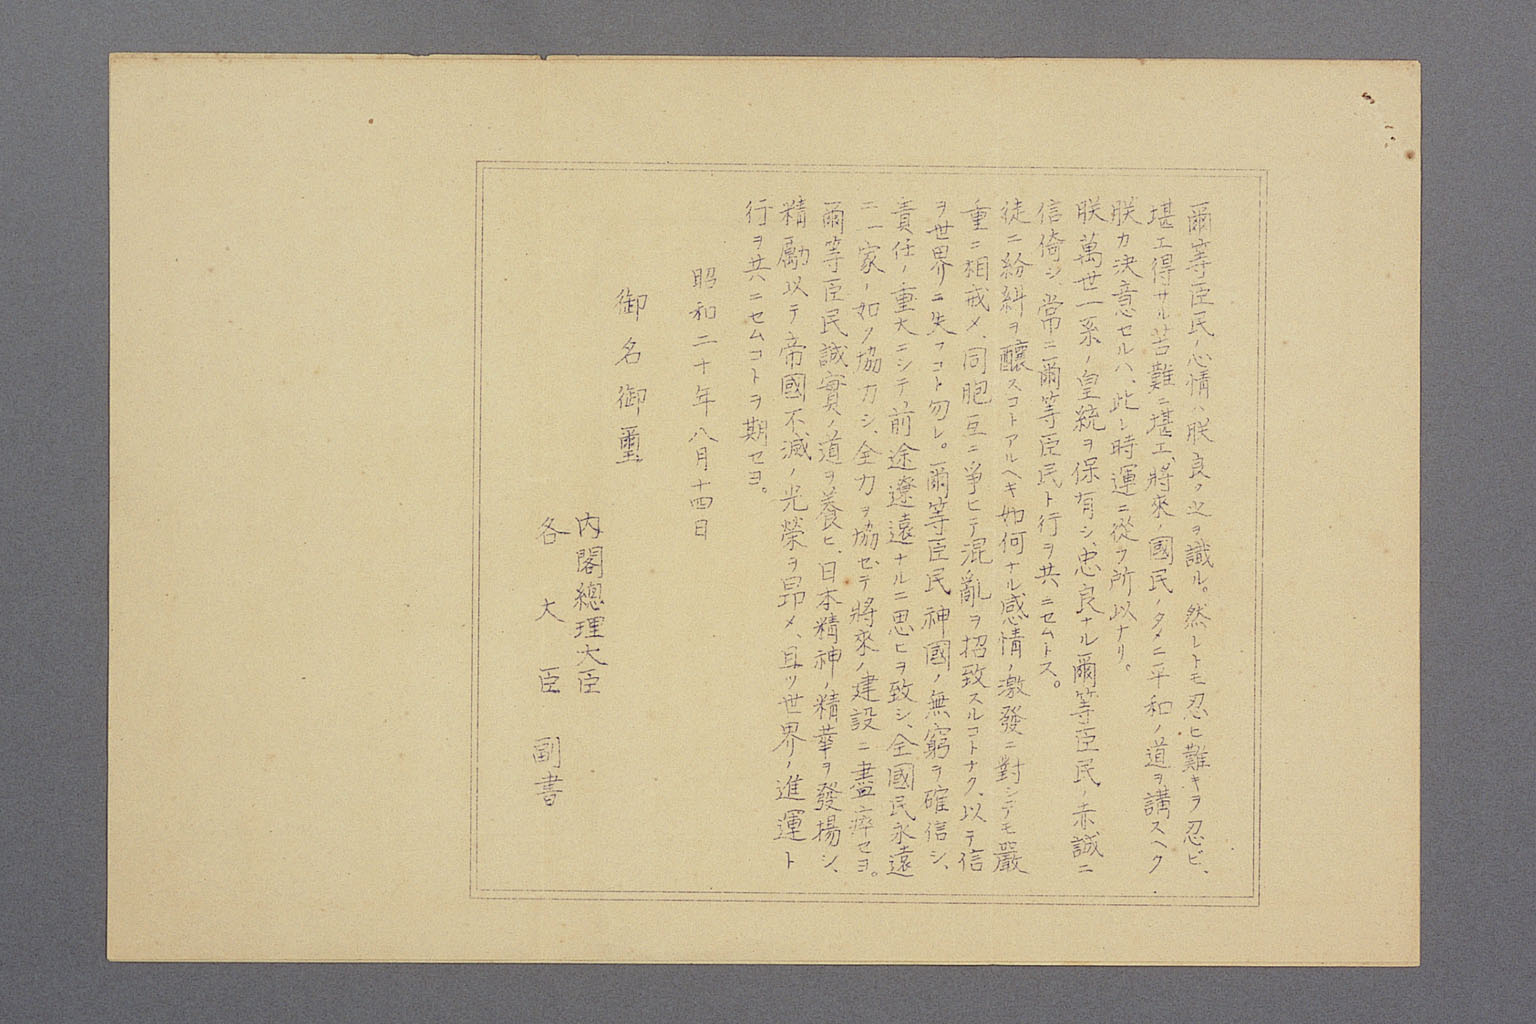 爾等臣民ノ心情ハ朕良ク之ヲ識ル。然レトモ忍ヒ難キヲ忍ビ、
堪エ得サル苦難ニ堪エ、將來ノ國民ノタメニ平和ノ道ヲ講スヘク
朕カ決意セルハ、此レ時運ニ從フ所以ナリ。
朕萬世一系ノ皇統ヲ保有シ、忠良ナル爾等臣民ノ赤誠ニ
信倚シ、常ニ爾等臣民ト行ヲ共ニセムトス。
徒ニ紛糾ヲ釀スコトアルヘキ如何ナル感情ノ激發ニ對シテモ嚴
重ニ相戒メ、同胞互ニ爭ヒテ混亂ヲ招致スルコトナク、以テ信
ヲ世界ニ失フコト勿レ。爾等臣民神國ノ無窮ヲ確信シ、
責任ノ重大ニシテ、前途遼遠ナルニ思ヒヲ致シ、全國民永遠
ニ一家ノ如ク協力シ、全力ヲ協セテ將來ノ建設ニ盡瘁セヨ。
爾等臣民誠實ノ道ヲ養ヒ、日本精神ノ精華ヲ發揚シ、
精勵以テ帝國不滅ノ光榮ヲ昂メ、且ツ世界ノ進運ト
行ヲ共ニセムコトヲ期セヨ。
昭和二十年八月十四日
御名御璽
内閣總理大臣
各大臣 副書